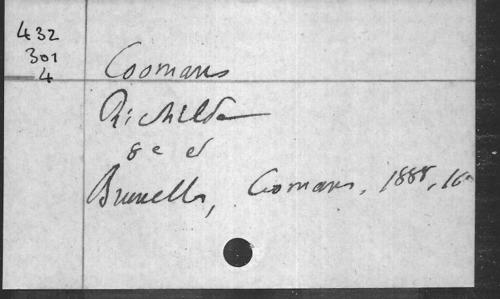 432
301
4
Coomans
Richilde
8e ed
Bruxelles, Coomans, 1888, 16°